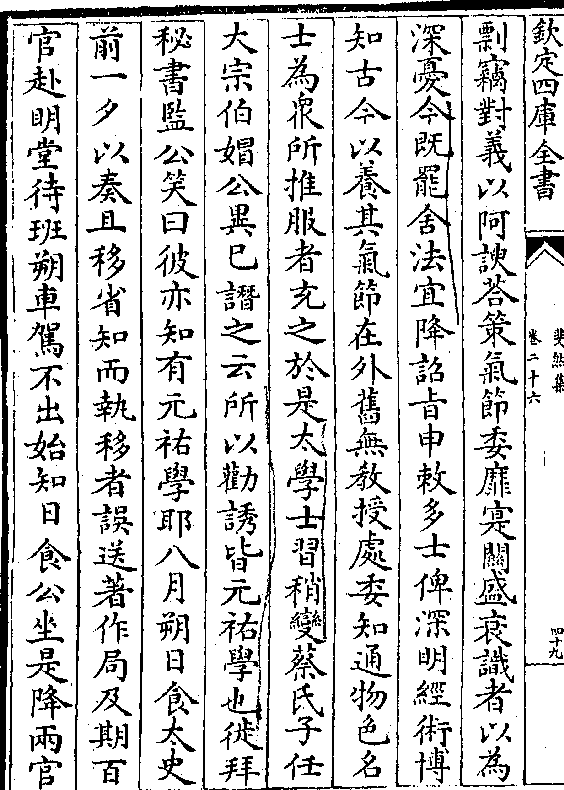 欽定四庫全書
斐然集
卷二十六
四十九
剽竊對義以阿諛荅策氣節委靡寔關盛衰識者以為
深憂今既罷舍法宜降詔㫖申敕多士俾深明經術博
知古今以養其氣節在外舊無教授處委知通物色名
士為衆所推服者充之於是太學士習稍變蔡氏子任
大宗伯媢公異已譖之云所以勸誘皆元祐學也徙拜
秘書監公笑曰彼亦知有元祐學耶八月朔日食太史
前一夕以奏且移省知而執移者誤送著作局及期百
官赴明堂待班朔車駕不出始知日食公坐是降兩官